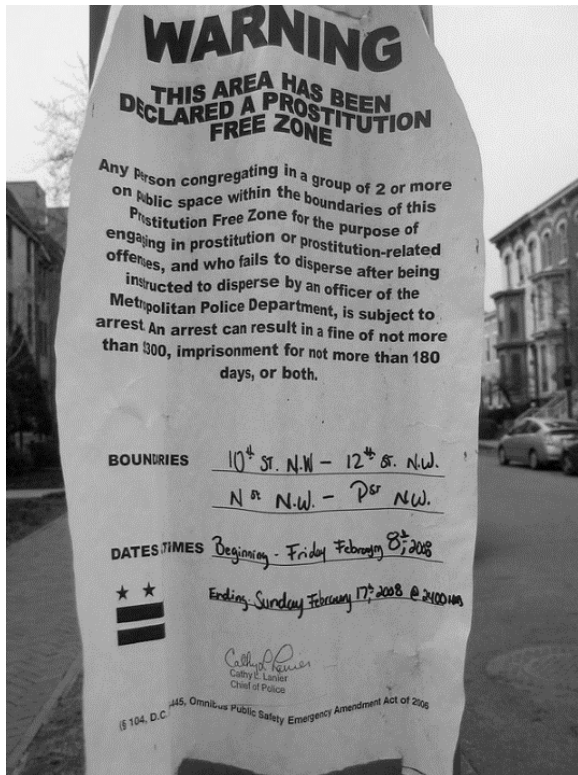 WARNING
THIS AREA HAS BEEN
DECLARED A PROSTITUTION
FREE ZONE
Any Person congregating in a group of 2 or more
on Public space within the boundaries of this
Prostitution Free Zone for the purpose of
engaging in prostitution or prostitution-related
offenses, and who fails to disperse after being
instructed to disperse by an officer of the
Metropolitan Police Department, is subject to
arrest. An arrest can result in a fine of not more
than $300, imprisonment for not more than 180
days, or both.
BOUNDRIES 10th ST. N.W - 12th ST. N.W.
N St N.W. - P St N.W.
DATES/TIMES Beginning - Friday February 8th, 2008
Ending: Sunday February 17th, 2008 @ 2400 HRS
Cathy L. Lanier
Cathy L. Lanier
Chief of Police
(§ 104, D.C. 445, Omnibus Public Safety Emergency Amendment Act of 2006